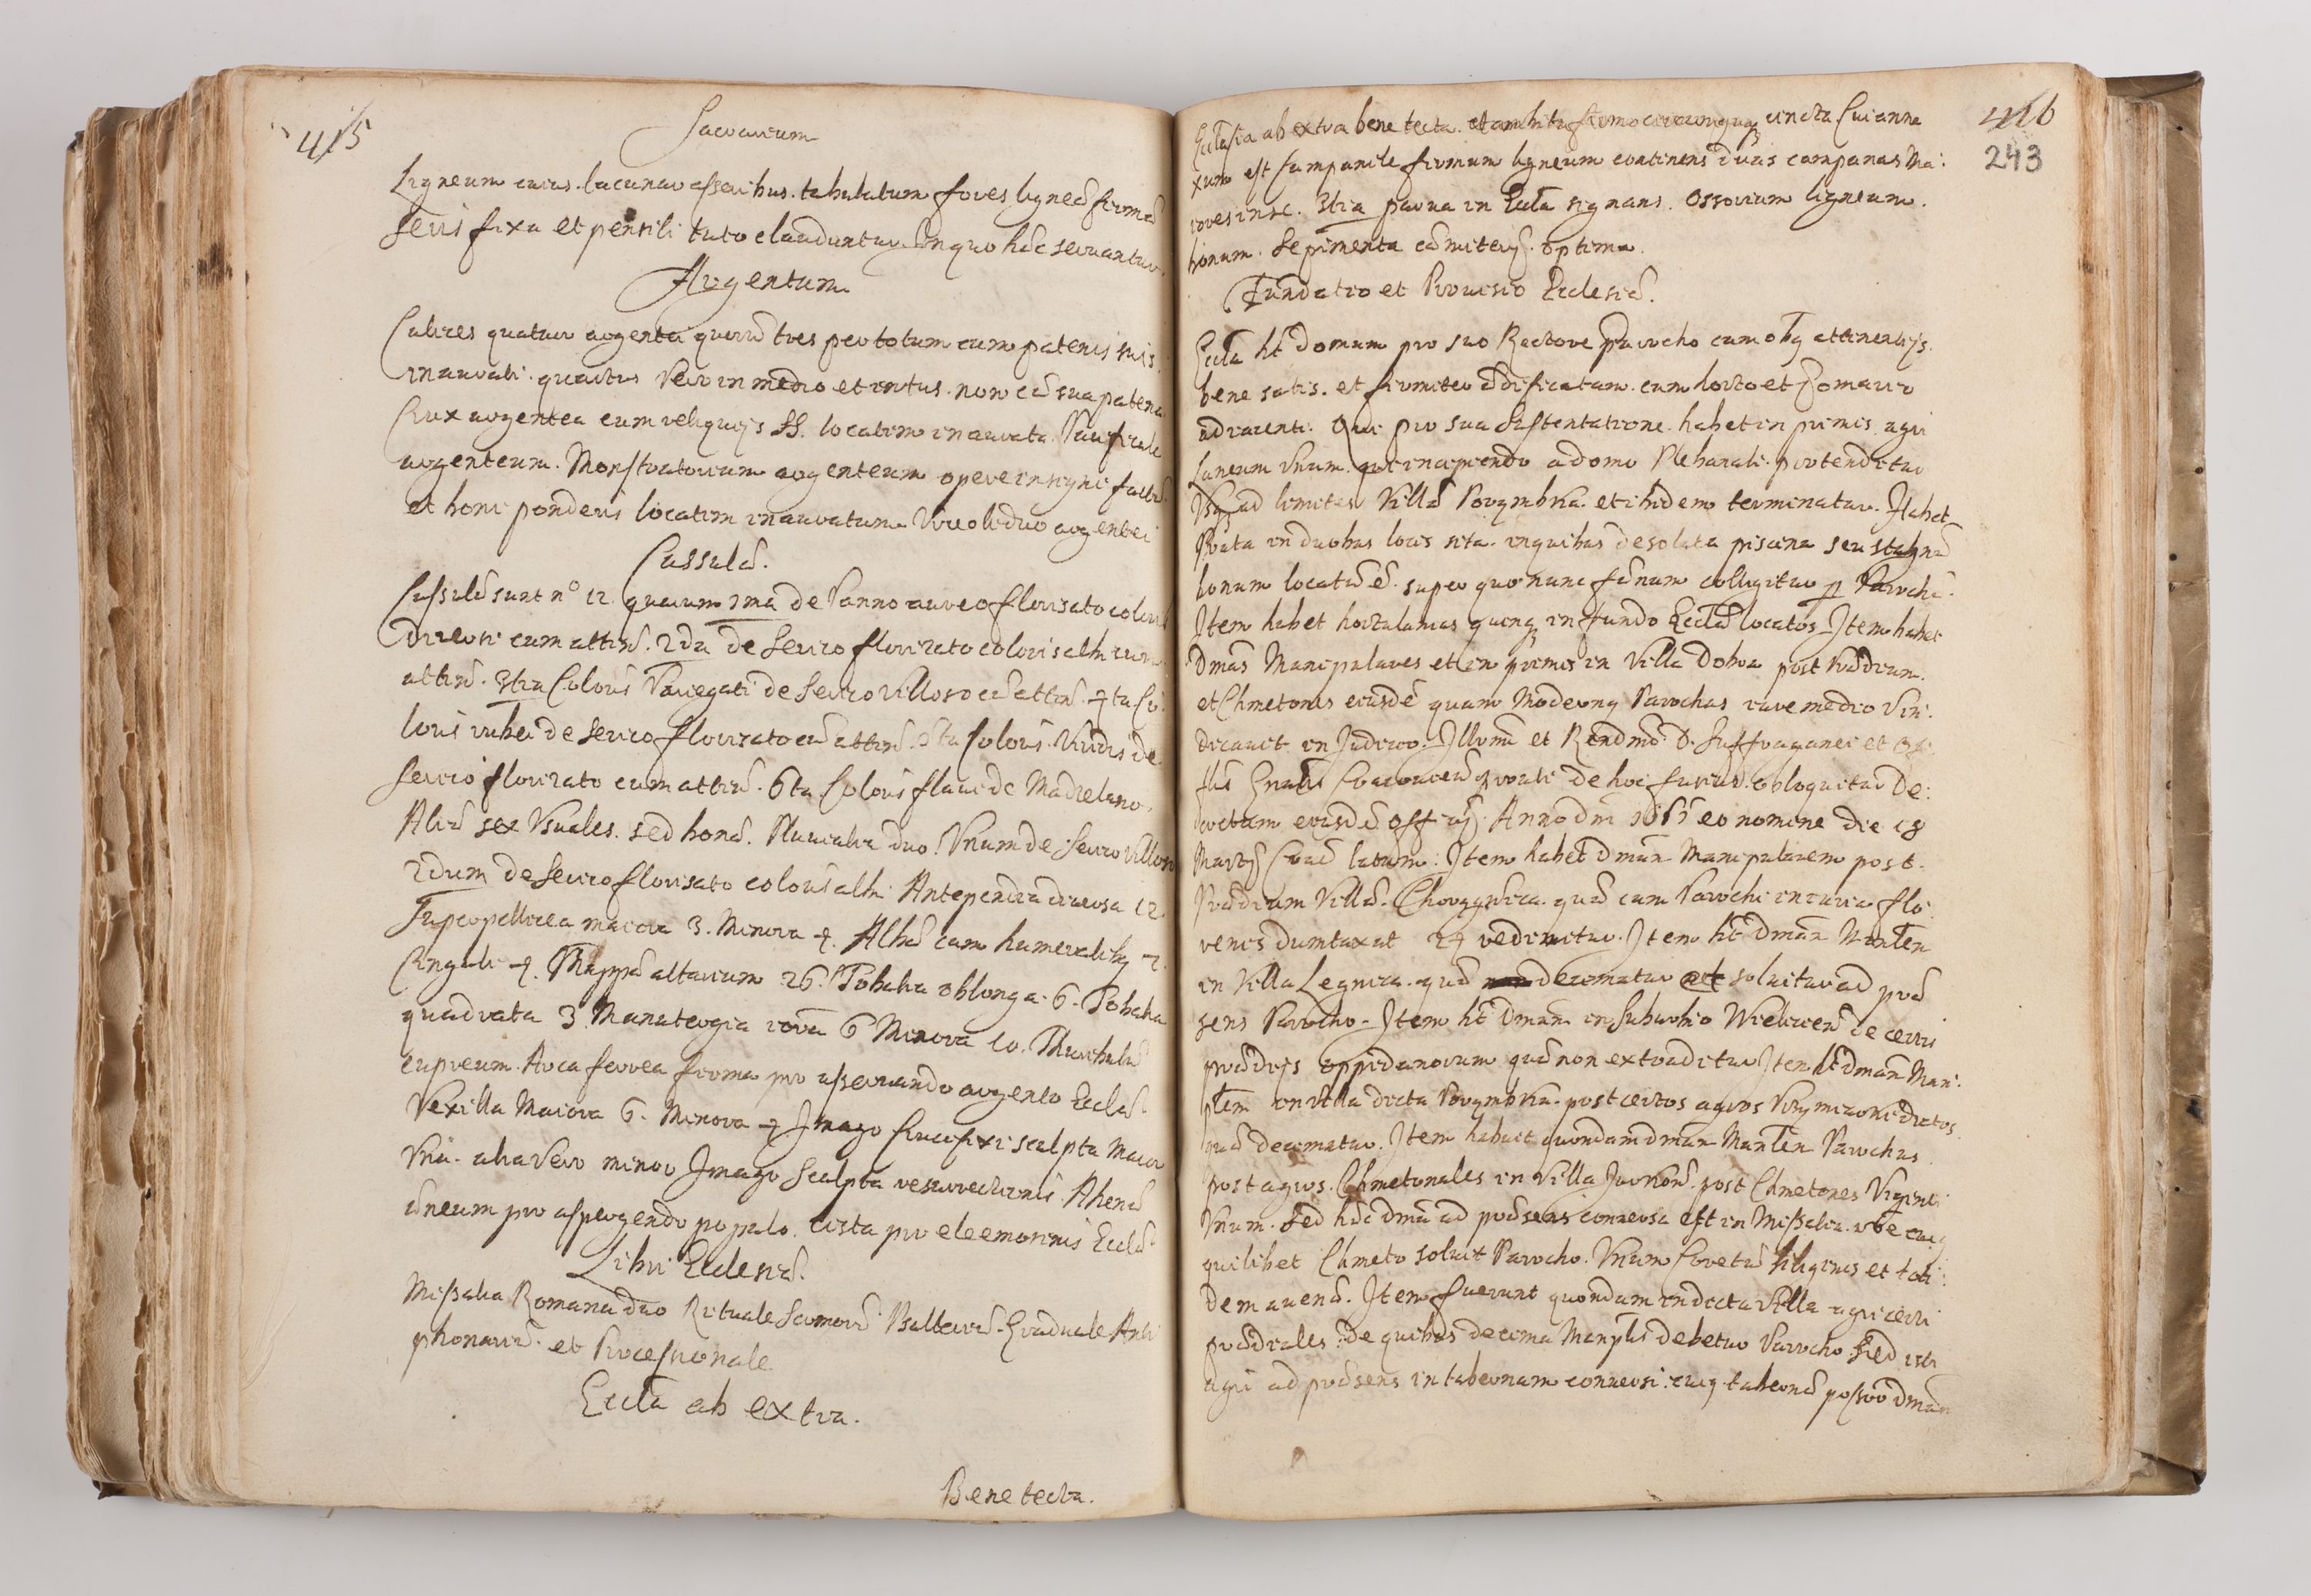 415
Sacrarium
Ligneum cuius lacunar asseribus tabulatum fores ligneæ firmæ
seris fixa et pensili tuto clauduntur. In quo hæc seruantur.
Argentum
Calices quatuor argentei quorũ tres per totum cum patenis suis
inaurati. quartus vero in medio et intus. non cũ sua patena
Crux argentea cum reliquijs SS. locatim inaurata. Pacificale
argenteum. Monstratorium argenteum opere insigni factũ
et boni ponderis locatim inauratum Vrceoli duo argentei
Cassulæ.
Cassulæ sunt nº 12. quarum 1ma de Panno aureo florisato coloris
diuersi cum attinẽ. 2da de serico florizato coloris albi cum
attinẽ. 3tia Coloris Variegati de serico villoso cũ attinẽ. 4ta Co-
loris rubei de serico florizato cũ attinẽ. 5ta Coloris Viridis de
serico florizato cum attinẽ. 6ta Coloris flaui de Madzelano.
Aliæ sex Vsuales. sed bonæ. Pluuialia duo. Vnum de serico villoso
2dum de serico florisato coloris albi Antependia diuersa 12.
Superpellicea maiora 3. Minora 4. Albæ cum humeralibq 7.
Cinguli 4. Mappæ altarium 26. Tobalia oblonga. 6. Tobalia
quadrata 3. Manutergia 6 Minora 10. Thuribulũ
cupreum. Arca ferrea firma pro asseruando argento Ecclæ.
Vexilla Maiora 6. Minora 4. Imago Crucifixi sculpta Maior
Vna. alia Vero minor Imago Sculpta resurrectionis. Ahenũ
æneum pro aspergendo populo. Cista pro eleemosinis Ecclæ
Libri Ecclesiæ.
Missalia Romana duo Rituale Psalteriũ. Graduale Anti
phonariũ. et Processionale
Eccla ab extra.
Bene tecta.
416
243
Ecclesia ab extra bene tecta. et ambitu firmo circumquaq cincta Cui anne
xum est Campanile firmum ligneum continens duas campanas Ma:
iores in se. 3tia parua in Eccla signans. Ossorium ligneum.
bonum. Sepimenta cæmiterij. optima.
Fundatio et Prouisio Ecclesiæ.
Eccla ht domum pro suo Rectore Parocho cum oibq attinentijs.
bene satis. et firmiter ædificatam. cum horto et Pomario
adiacenti. Qui pro sua sustentatione. habet in primis agri
Laneum Vnum. qui incipiendo a domo Plebanali. protenditur
Vsq ad limites Villæ Porąmbka. et ibidem terminatur. Habet
Prata in duobus locis sita. in quibus desolata piscina seu stagnũ
bonum locatũ ẽ. super quo nunc fænum colligitur p Parochũ.
Item habet hortulanias quinq in fundo Ecclæ locatos. Item habet
Dmãs Manipulares et in primis in Villa Dobra post Prædium.
et Chmetones eiusdẽ quam Modernq Parochus iure medio Vin:
dicauit. in Judicio. Illmi et Rendmi. D. Suffraganei et Off:
lis Gnalis Cracouien. De hoc fusius obloquitur De:
cretum eiusdẽ Officij. Anno dni eo nomine die 18
Martij Crac. latum. Item habet dmãm Manipularem post.
Prædium Villæ. Chorągwica. quæ cum Parochi iniuria flo:
renis dumtaxat 24 redimitur. Item ht Dmãm Manlem
in Villa Lednica. quæ decimatur et soluitur ad præ
sens Parocho. Item ht Dmãm in Suburbio Wielicien de certis
prædijs oppidanorum quæ non extraditur Item ht dmãm Mani:
plem in villa dicta Porąmbka. post certos agros dictos
quæ decimatur. Item habuit quondam dmãm Manlem Parochus
post agros. Chmetonales in Villa post Chmetones Viginti
Vnum. Sed hæc dma ad præsens conuersa est in Missalia. vbi
quilibet Chmeto soluit Parocho. Vnum Coretũ siliginis et toti:
dem auenæ. Item fuerunt quondam in dicta Villa agri certi
prædiales. de quibus decima Manplis debetur Parocho. Sed isti
agri ad præsens in tabernam conuersi. tabernæ possor dmãm